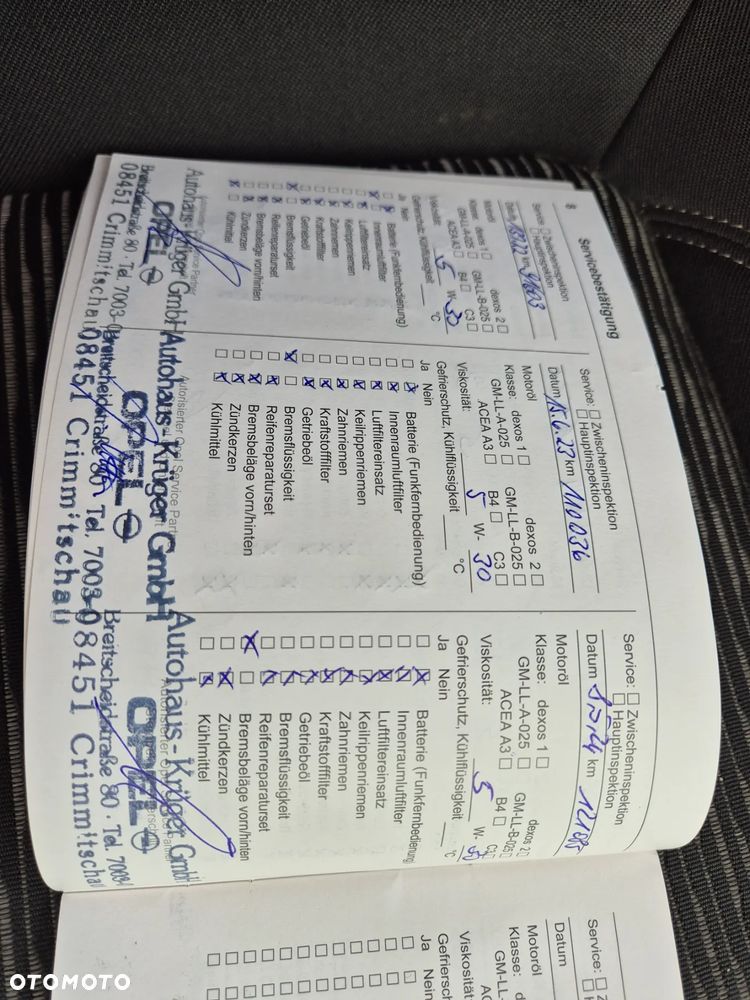 8
Servicebestätigung
Service: Zwischeninspektion
Hauptinspektion
Datum km
Motoröl
Klasse: dexos 1 dexos 2
GM-LL-A-025 GM-LL-B-025
ACEA A3 B4 C3
Viskosität: 5 W- 30
Gefrierschutz, Kühlflüssigkeit °C
Ja Nein
Batterie (Funkfernbedienung)
Innenraumluftfilter
Luftfiltereinsatz
Keilrippenriemen
Zahnriemen
Kraftstofffilter
Getriebeöl
Bremsflüssigkeit
Reifenreparaturset
Bremsbeläge vorn/hinten
Zündkerzen
Kühlmittel
Autohaus-Krüger GmbH
OPEL
Breitscheidstraße 80 · Tel. 7003-0
08451 Crimmitschau
Service: Zwischeninspektion
Hauptinspektion
Datum 15.6.23 km 110036
Motoröl
Klasse: dexos 1 dexos 2
GM-LL-A-025 GM-LL-B-025
ACEA A3 B4 C3
Viskosität: 5 W- 30
Gefrierschutz, Kühlflüssigkeit °C
Ja Nein
Batterie (Funkfernbedienung)
Innenraumluftfilter
Luftfiltereinsatz
Keilrippenriemen
Zahnriemen
Kraftstofffilter
Getriebeöl
Bremsflüssigkeit
Reifenreparaturset
Bremsbeläge vorn/hinten
Zündkerzen
Kühlmittel
Autorisierter Opel Service Partner
Autohaus-Krüger GmbH
OPEL
Breitscheidstraße 80 Tel. 7003-0
08451 Crimmitschau
Service: Zwischeninspektion
Hauptinspektion
Datum km
Motoröl
Klasse: dexos 1 dexos 2
GM-LL-A-025 GM-LL-B-025
ACEA A3 B4 C3
Viskosität: 5 W- 30
Gefrierschutz, Kühlflüssigkeit °C
Ja Nein
Batterie (Funkfernbedienung)
Innenraumluftfilter
Luftfiltereinsatz
Keilrippenriemen
Zahnriemen
Kraftstofffilter
Getriebeöl
Bremsflüssigkeit
Reifenreparaturset
Bremsbeläge vorn/hinten
Zündkerzen
Kühlmittel
Autohaus-Krüger GmbH
OPEL
Breitscheidstraße 80 · Tel. 7003-
08451 Crimmitschau
Service:
Datum
Motoröl
Klasse: dexos
GM-LL-A
ACEA
Viskosität:
Gefrierschutz, Kü
Ja Nein
OTOMOTO